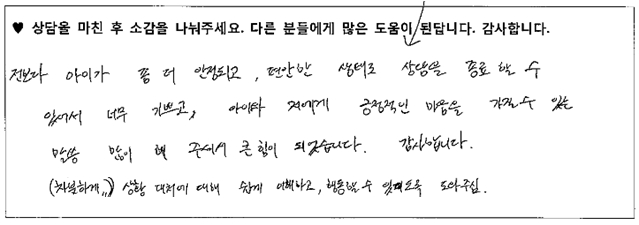 ♥ 상담을 마친 후 소감을 나눠주세요. 다른 분들에게 많은 도움이 된답니다. 감사합니다.
전보다 아이가 좀 더 안정되고, 편안한 상태로 상담을 종료할 수
있어서 너무 기쁘고, 아이와 저에게 긍정적인 마음을 가질 수 있는
말씀 많이 해 주셔서 큰 힘이 되었습니다. 감사합니다.
(차분하게,,) 상황 대처에 대해 쉽게 이해하고, 행동할 수 있도록 도와주심.